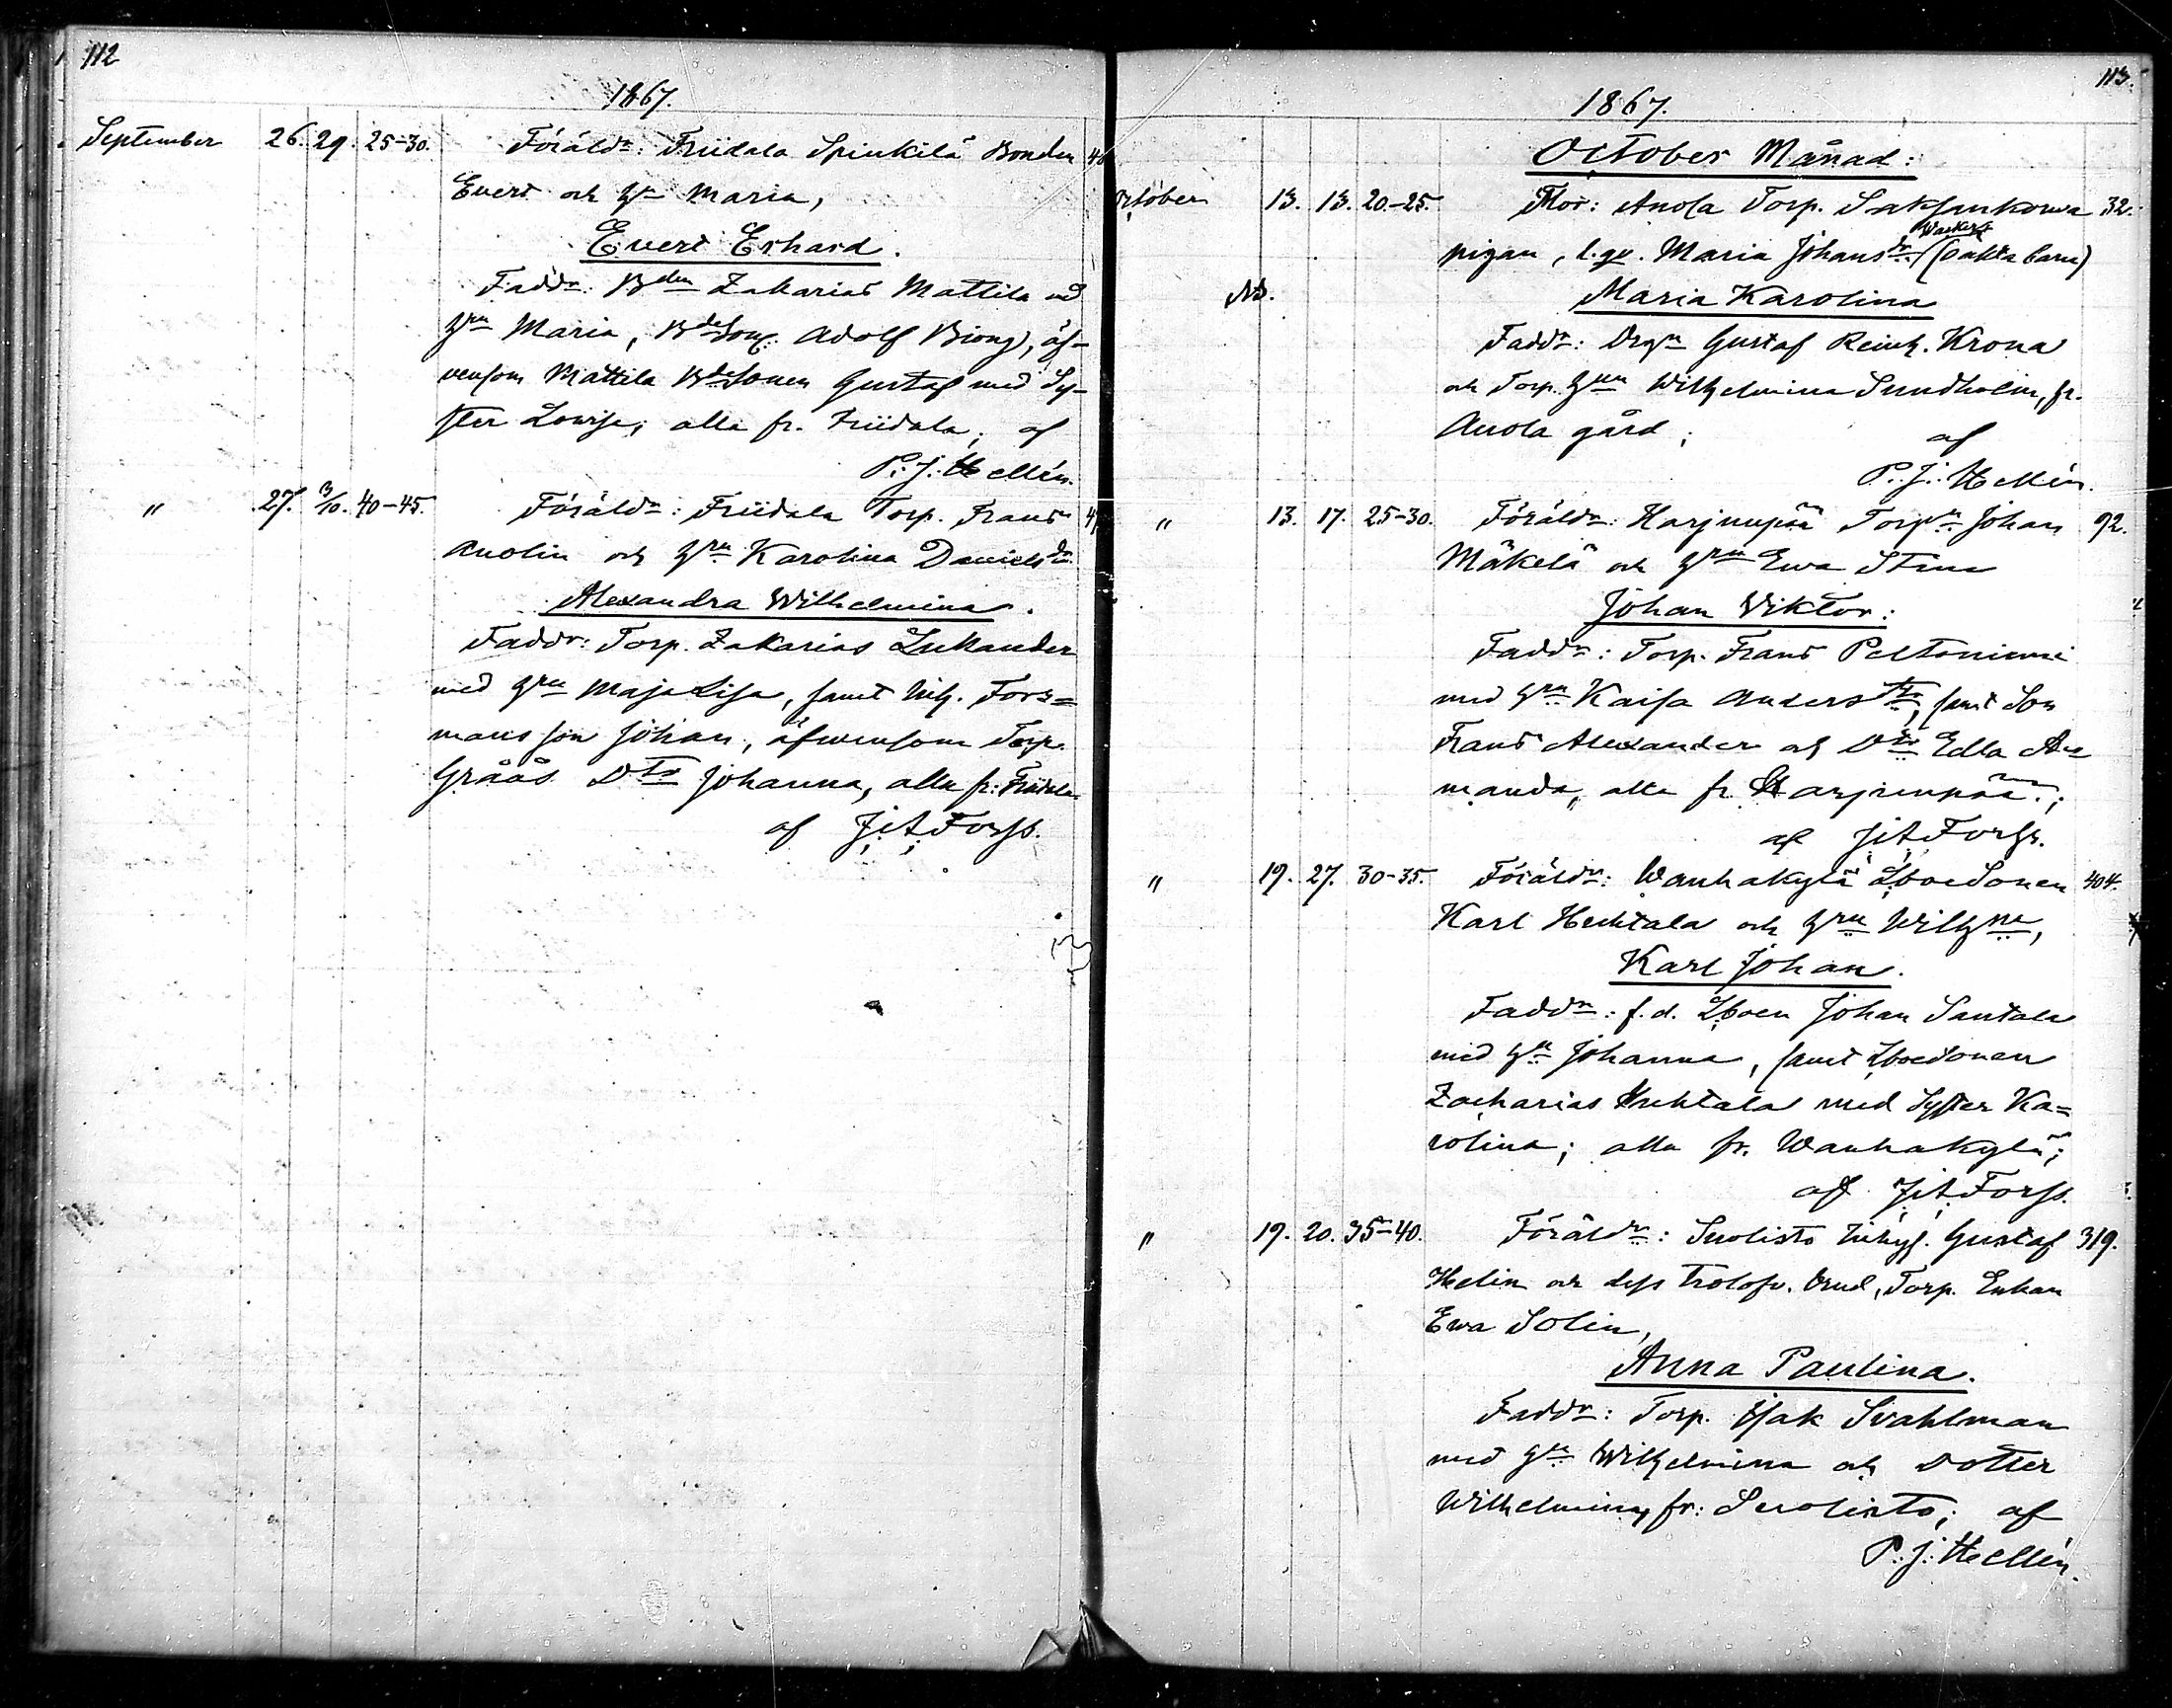 112
1867.
September 26. 29. 25-30. Föräldr: Friidala Spinkilä Bonden
Evert och h Maria,
Evert Erhard.
Faddr: Bden Zakarias Mattila med
hru Maria, Bdeson Adolf, äf-
vensom Mattila Bdesonen Gustaf med Sy-
ster Lowisa; alla fr. Friidala; af
P. J. Hellén.
" 27. 3/10. 40-45. Föräldr: Friidala Torp. Frans
Anolin och hru Karolina Danielsdr.
Alexandra Wilhelmina.
Faddr: Torp. Zakarias Lukander
med hru Maja Lisa, samt Inh. Fors=
mans son Johan, äfwensom Torp.
Gråås Dtr Johanna, alla fr: Friidala
af J. A. Forss.
113.
1867.
October Månad:
October 13. 13. 20-25. Mor: Anola Torp. 32.
pigan, l. qv. Maria Johansdr. (oäkta barn)
Nb. Maria Karolina
Faddr: Drgn Gustaf Reinh. Krona
och Torp. hrun Wilhelmina Sundholm, fr.
Anola gård; af
P. J. Hellén.
" 13. 17. 25-30. Föräldr: Harjunpää Torpn Johan 92.
Mäkelä och hru Ewa Stina
Johan Viktor:
Faddr: Torp. Frans Peltoniemi
med hru Kaisa Andersdtr, samt Son
Frans Alexander och Dtr Edla A=
manda, alla fr. Harjunpää;
af J. A. Forss.
" 19. 27. 30-35. Föräldr: Wanhakylä Lboesonen 404.
Karl Huhtala och hru Wilhna,
Karl Johan.
Faddr: f. d. Lboen Johan Santala
med hru Johanna, samt Lboesonen
Zacharias Huhtala med Syster Ka=
rolina; alla fr. Wanhakylä;
af J. A. Forss.
" 19. 20. 35-40. Föräldr: Suolisto Inhys. Gustaf 319.
Helin och dess trolofv. brud, Torp. Enkan
Ewa Solin,
Anna Paulina.
Faddr: Torp. Isak Svahlman
med hru Wilhelmina och dotter
Wilhelmina, fr: Suolisto; af
P. J. Hellén.